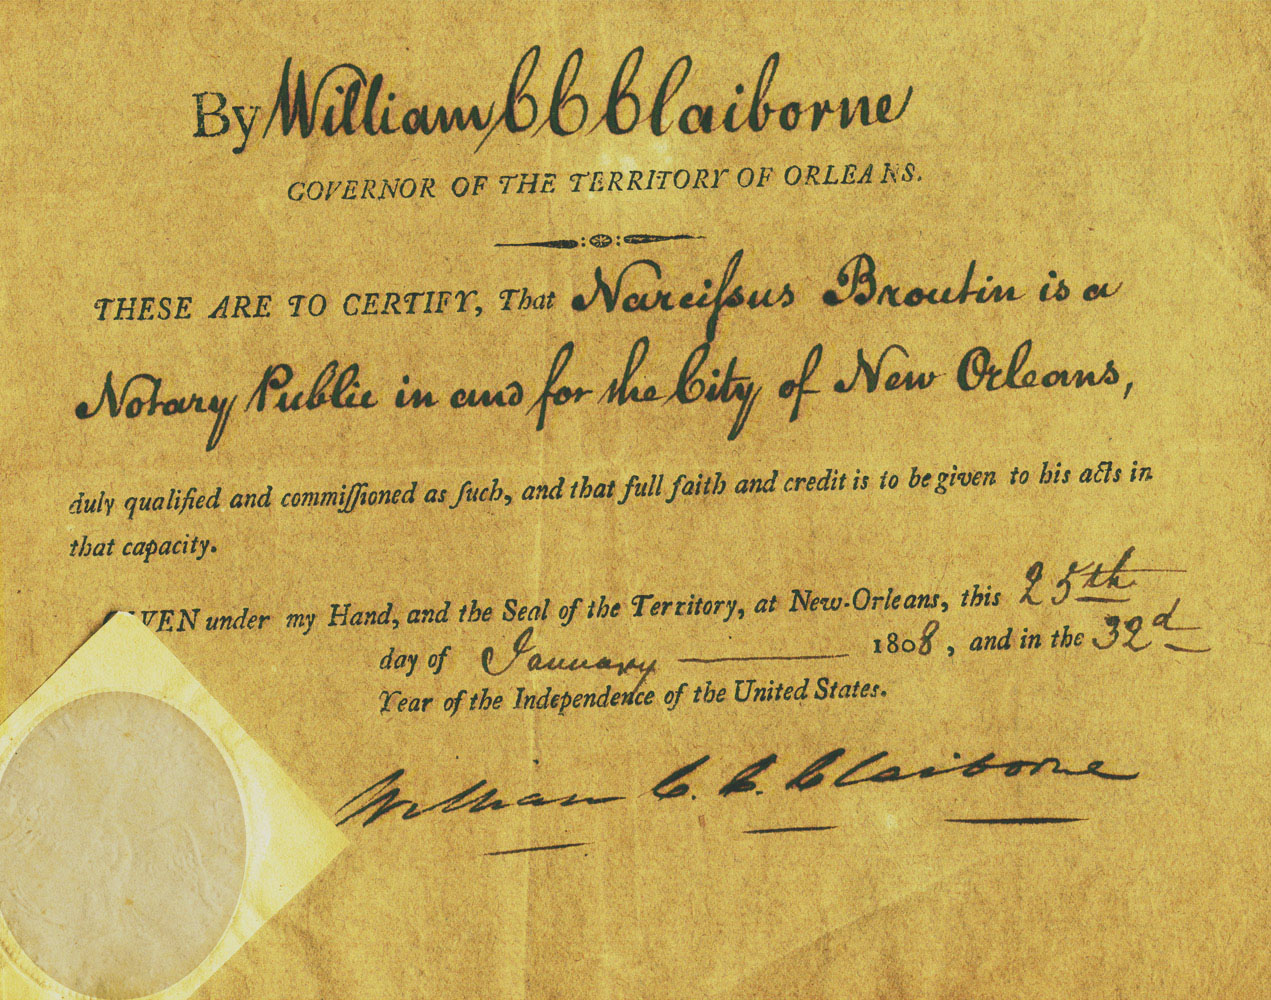 By William C C Claiborne
GOVERNOR OF THE TERRITORY OF ORLEANS.
THESE ARE TO CERTIFY, That Narciſsus Broutin is a
Notary Public in and for the City of New Orleans,
duly qualified and commiſſioned as ſuch, and that full faith and credit is to be given to his acts in
that capacity.
GIVEN under my Hand, and the Seal of the Territory, at New-Orleans, this 25th
day of January 1808, and in the 32d
Year of the Independence of the United States.
William C. C. Claiborne